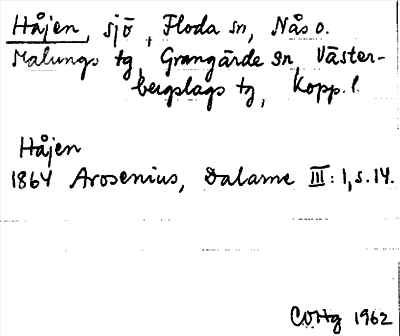 Håjen, sjö, Floda sn, Nås o.
Malungs tg, Grangärde sn, Väster-
bergslags tg, Kopp. l.
Håjen
1864 Arosenius, Dalarne III: 1, s. 14.
COHg 1962